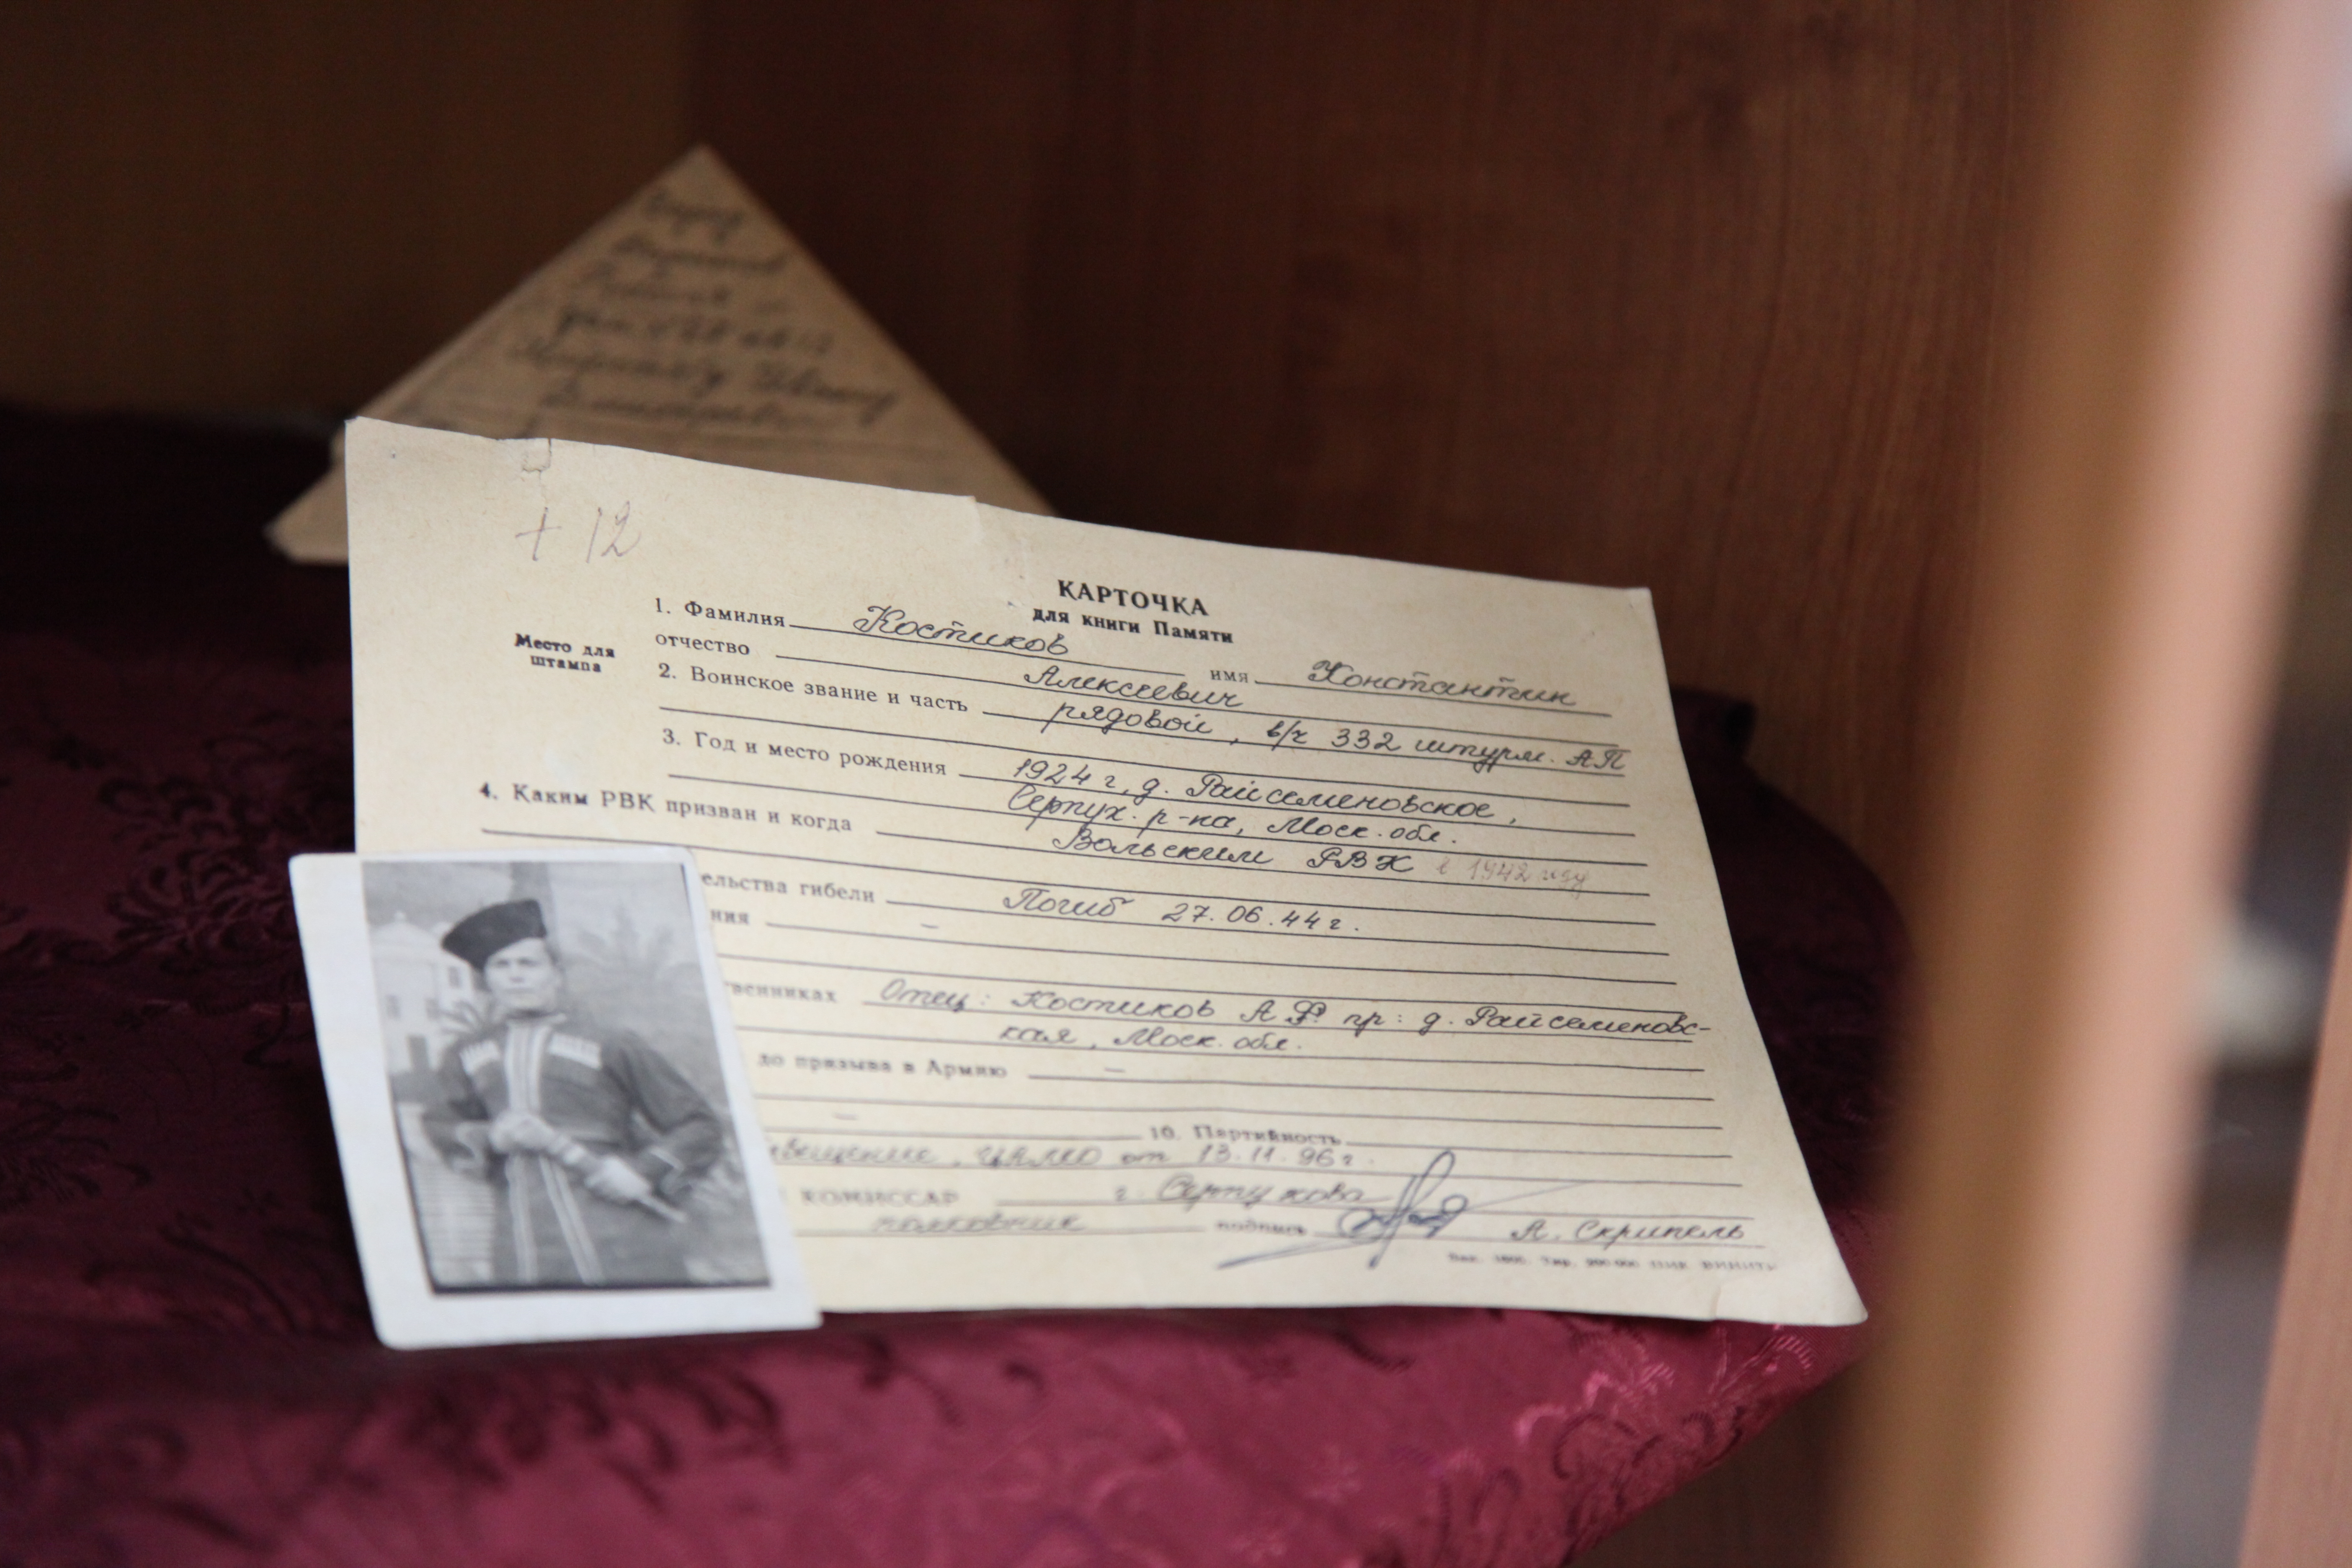 + 12
КАРТОЧКА
для книги Памяти
Место для
штампа
1. Фамилия Костиков имя Константин
отчество Алексеевич
2. Воинское звание и часть рядовой, в/ч 332 штурм. АП
3. Год и место рождения 1924 г, д. Райсеменовское,
Серпух. р-на, Моск. обл.
4. Каким РВК призван и когда Вольским РВК в 1942 году
ельства гибели Погиб 27.06.44 г.
ния –
твенниках Отец: Костиков А Ф. пр: д. Райсеменовс-
кая, Моск. обл.
до призыва в Армию –
–
10. Партийность
ЦАМО от 13.11.96 г.
КОМИССАР г. Серпухова
полковник подпись А. Скрипель